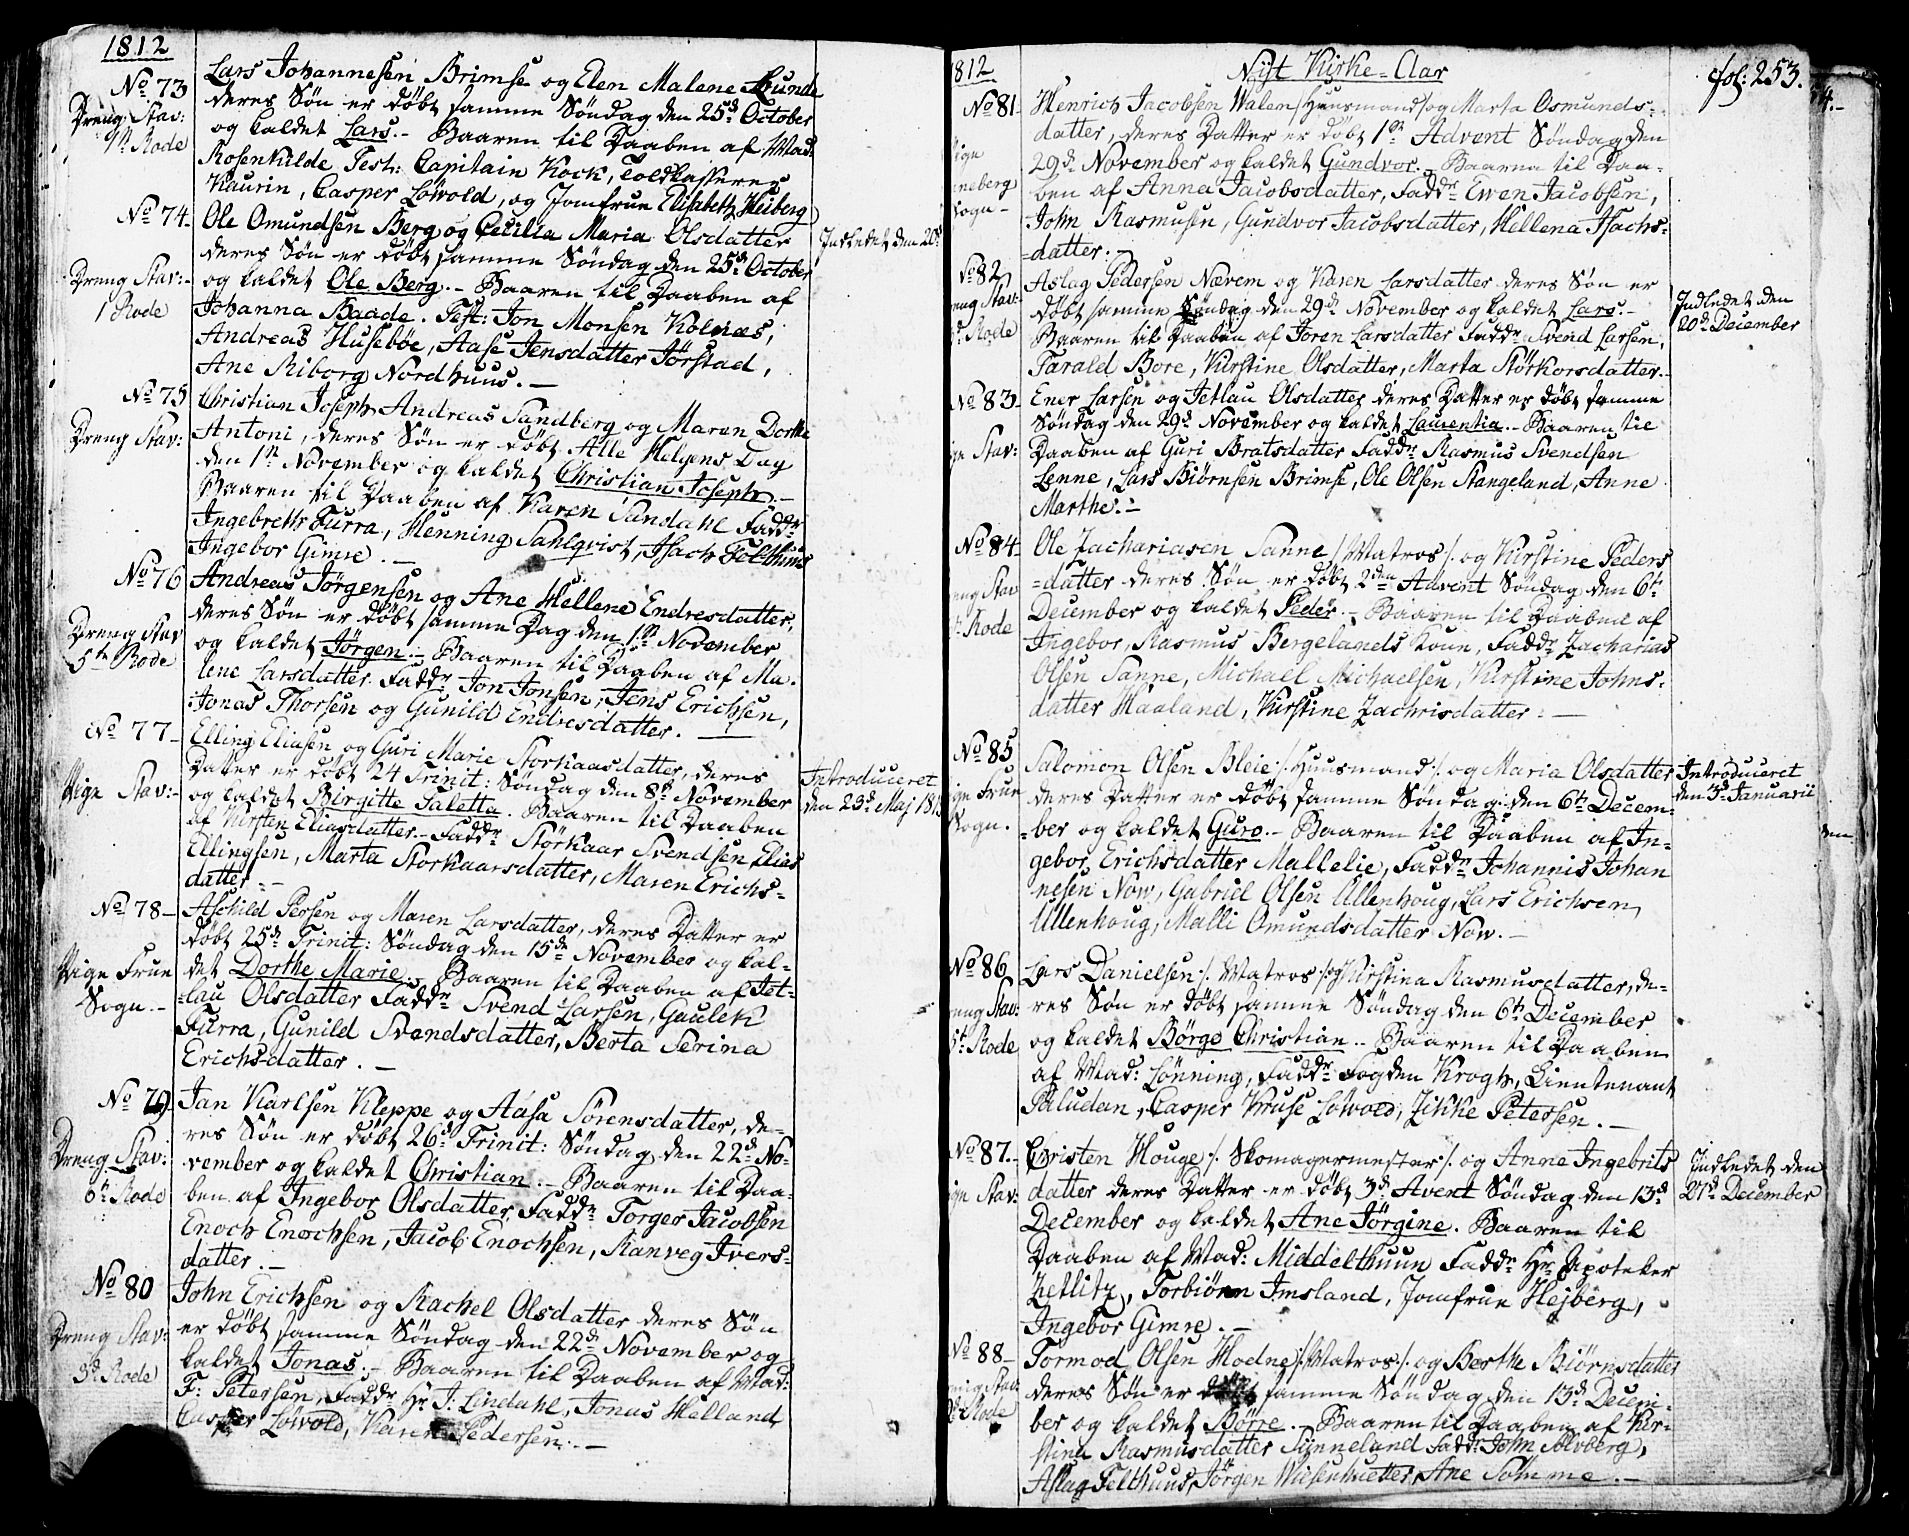 1812
No 73
Dreng Stav:
Rode
Lars Johannesen Brimse og Elen Malene Lunde
deres Søn er døbt samme Søndag den 25d October
og kaldet Lars.- Baaren til Daaben af Mad:
Rosenkilde Test: Capitain Kock, Toldkasserer
Kaurin, Casper Løwold, og Jomfrue Elisabeth Heiberg
No 74
Dreng Stav:-
1 Rode
Ole Omundsen Berg og Cecilia Maria Olsdatter
deres Søn er døbt samme Søndag den 25d October
og kaldet Ole Berg.- Baaren til Daaben af
Johanna Baade. Test: Jon Monsen Kolnæs,
Andreas Husebøe, Aase Jensdatter Jørstad,
Ane Riborg Nordhuus.-
Indledet den 20d
No 75
Dreng Stav:
Christian Joseph Andreas Sandberg og Maren Dorthe
Antoni, deres Søn er døbt Alle Helgens Dag
den 1ste November og kaldet Christian Joseph.-
Baaren til Daaben af Karen Sundahl Faddr
Ingebreth Furra, Henning Sahlqvist, Isach Felthuus
Ingebor Gimre.-
No 76
Dreng Stav
5te Rode
Andreas Jørgensen og Ane Hellene Endresdatter,
deres Søn er døbt samme Dag den 1ste November
og kaldet Jørgen.- Baaren til Daaben af Ma-
lene Larsdatter. Faddr Jon Jonsen, Jens Erichsen,
Jonas Thorsen og Gunild Endresdatter.-
No 77-
Pige Stav:-
Elling Eliasen og Guri Marie Storkaasdatter, deres
Datter er døbt 24 Trinit: Søndag den 8de November
og kaldet Birgitte Taletta. Baaren til Daaben
af Kirsten Eliasdatter.- Faddr Størkaar Svendsen Elias
Ellingsen, Marta Storkaarsdatter, Maren Erichs-
datter.-
Introduceret
den 23d Maj 1813
No 78-
Pige Frue
Sogn.-
Aschild Persen og Maren Larsdatter, deres Datter er
døbt 25de Trinit: Søndag den 15de November og kal-
det Dorthe Marie.- Baaren til Daaben af Jet-
=lau Olsdatter Faddr Svend Larsen, Gaulek
Furra, Gunild Svendsdatter, Berta Serina
Erichsdatter.-
No 79
Dreng Stav:
6te Rode
Jan Karlsen Kleppe og Aasa Sørensdatter, de-
res Søn er døbt 26d Trinit: Søndag den 22d No-
vember og kaldet Christian.- Baaren til Daa-
ben af Ingebor Olsdatter, Faddr Torger Jacobsen
Enoch Enochsen, Jacob Enochsen, Ranveg Ivers-
datter.-
No 80
Dreng Stav:
3d Rode
John Erichsen og Rachel Olsdatter deres Søn
er døbt samme Søndag den 22de November og
kaldet Jonas.- Baaren til Daaben af Mad:
F: Petersen, Faddr Hr J: Lindahl, Jonas Helland
Casper Løwold, Karen Pedersen.-
812
Nyt Kirke-Aar
fol: 253.
4.-
No 81-
ige
neberg
sogn-
Henrich Jacobsen Walen/Huusmand/og Marta Osmunds-
datter, deres Datter er døbt 1ste Advent Søndag den
29de November og kaldet Gundvor.- Baaren til Daa-
ben af Anna Jacobsdatter, Faddr Ewen Jacobsen,
John Rasmusen, Gundvor Jacobsdatter, Hellena Isachs-
=datter.-
No 82
eng Stav:
d Rode
Aslag Pedersen Nærem og Karen Larsdatter deres Søn er
døbt samme Søndag den 29de November og kaldet Lars.-
Baaren til Daaben af Joren Larsdatter Faddr Svend Larsen,
Tarald Bore, Kirstine Olsdatter, Marta Størkorsdatter.-
Indledet den
20d December
No 83-
ge Stav:
Ener Larsen og Jetlau Olsdatter deres Datter er døbt samme
Søndag den 29d November og kaldet Laurentia.- Baaren til
Daaben af Guri Bratsdatter Faddr Rasmus Svendsen
Lenne, Lars Biørnsen Brimse, Ole Olsen Stangeland, Anne
Marthe.-
No 84-
eng Stav
Rode
Ole Zachariasen Sanne /:Matros:/ og Kirstine Peders
=datter deres Søn er døbt 2den Advent Søndag den 6te
December og kaldet Peder.- Baaren til Daaben af
Ingebor, Rasmus Bergelands Kone, Faddr Zacharias
Olsen Sanne, Michael Michaelsen, Kirstine Johns-
datter Haaland, Kirstine Zachrisdatter.-
No 85
ige Frue
Sogn.
Salomon Olsen Bleie /:Huusmand:/ og Maria Olsdatter
deres Datter er døbt samme Søndag den 6te Decem-
=ber og kaldet Guro.- Baaren til Daaben af In-
gebor Erichsdatter Mallelie, Faddr Johannis Johan
nesen Now, Gabriel Olsen Ullenhoug, Lars Erichsen
Ullenhoug, Malli Omundsdatter Now.-
Introduceret
den 3d Januarii
No 86
eng Stav:
5te Rode
Lars Danielsen /:Matros:/og Kirstina Rasmusdatter, de-
res Søn er døbt samme Søndag den 6te December
og kaldet Børge Christian.- Baaren til Daaben
af Mad: Lønning, Faddr Fogden Krogh, Lieutenant
Paludan, Casper Kruse Løwold, Zikke Petersen.-
No 87.-
ige Stav:
Christen Houge /:Skomagermester:/ og Anne Ingebrits
datter deres Datter er døbt 3d Avent Søndag den 13d
December og kaldet Ane Jørgine. Baaren til
Daaben af Mad: Middelthuun Faddr Hr Apoteker
Zetlitz, Torbiørn Imsland, Jomfrue Hejberg,
Ingebor Gimre.-
Indledet den
27d December
No 88-
eng Stav:
Rode
Tormod Olsen Hodne /:Matros:/ og Berthe Biørnsdatter
deres Søn er døbt samme Søndag den 13de Decem-
ber og kaldet Børre.- Baaren til Daaben af Kir-
stina Rasmusdatter Synneland Faddr John Solvberg,
Aslag Felthuus, Jørgen Wiesenhuetter, Ane Sømme.-